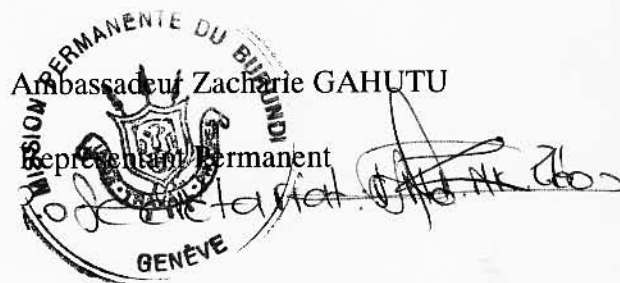 MISSION PERMANENTE DU BURUNDI
Ambassadeur Zacharie GAHUTU
Représentant Permanent
GENÈVE